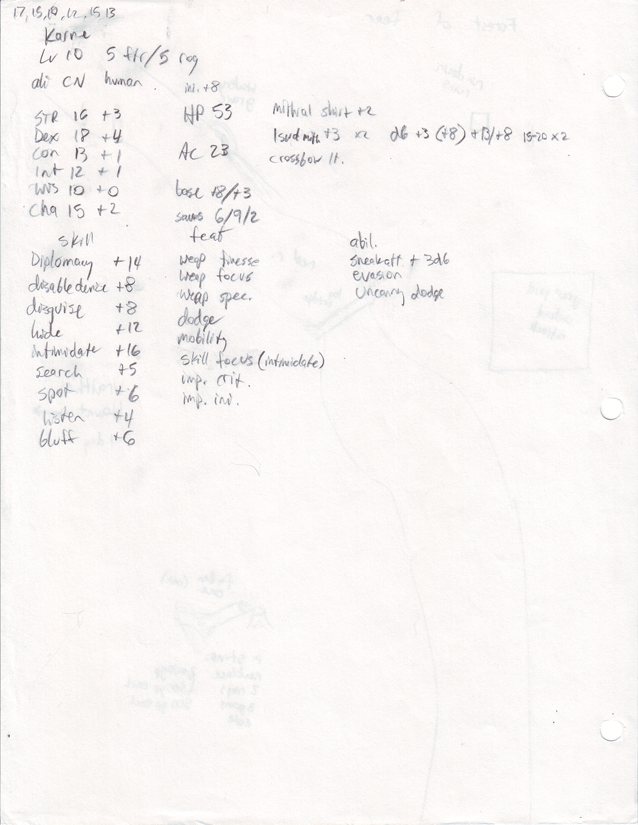 17, 15, 10, 12, 15 13
Karne
Lv 10 5 ftr/5 rog
ali CN human
ini. +8
STR 16 +3
Dex 18 +4
Con 13 +1
Int 12 +1
Wis 10 +0
Cha 15 +2
HP 53
AC 23
base +8/+3
saves 6/9/2
mithral shirt +2
+3 x2 d6 +3 (+8) +13/+8 15-20 x2
crossbow lt.
skill
Diplomacy +14
disable device +8
disguise +8
hide +12
Intimidate +16
search +5
spot +6
Listen +4
bluff +6
feat
weap finesse
weap focus
weap spec.
dodge
mobility
skill focus (intimidate)
imp. crit.
imp. ini.
abil.
sneak att + 3d6
evasion
Uncanny dodge